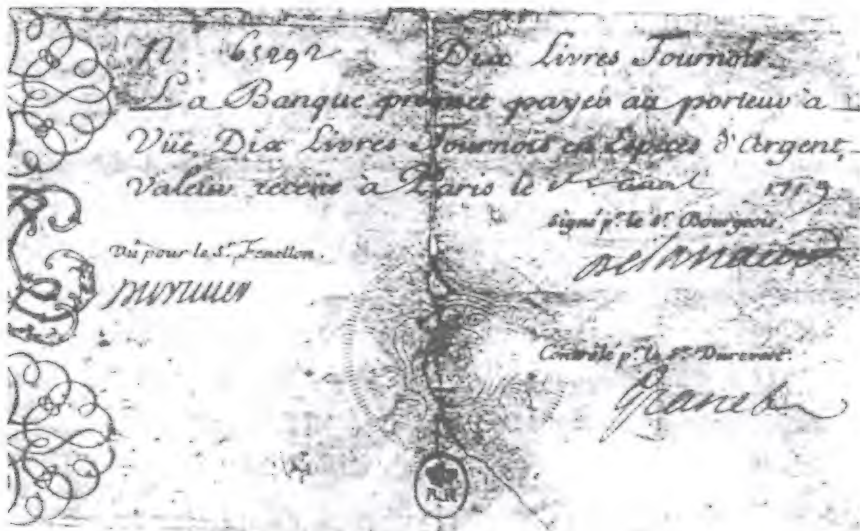 N. 65292 Dix Livres Tournois.
La Banque promet payer au porteur à
Vüe, Dix Livres Tournois en Especes d'Argent,
Valeur receüe à Paris le 1719
Signé p.r le S.r Bourgeois.
Vû pour le S.r Fenellon.
Contrôlé p.r le S.r Durevest.
Granet